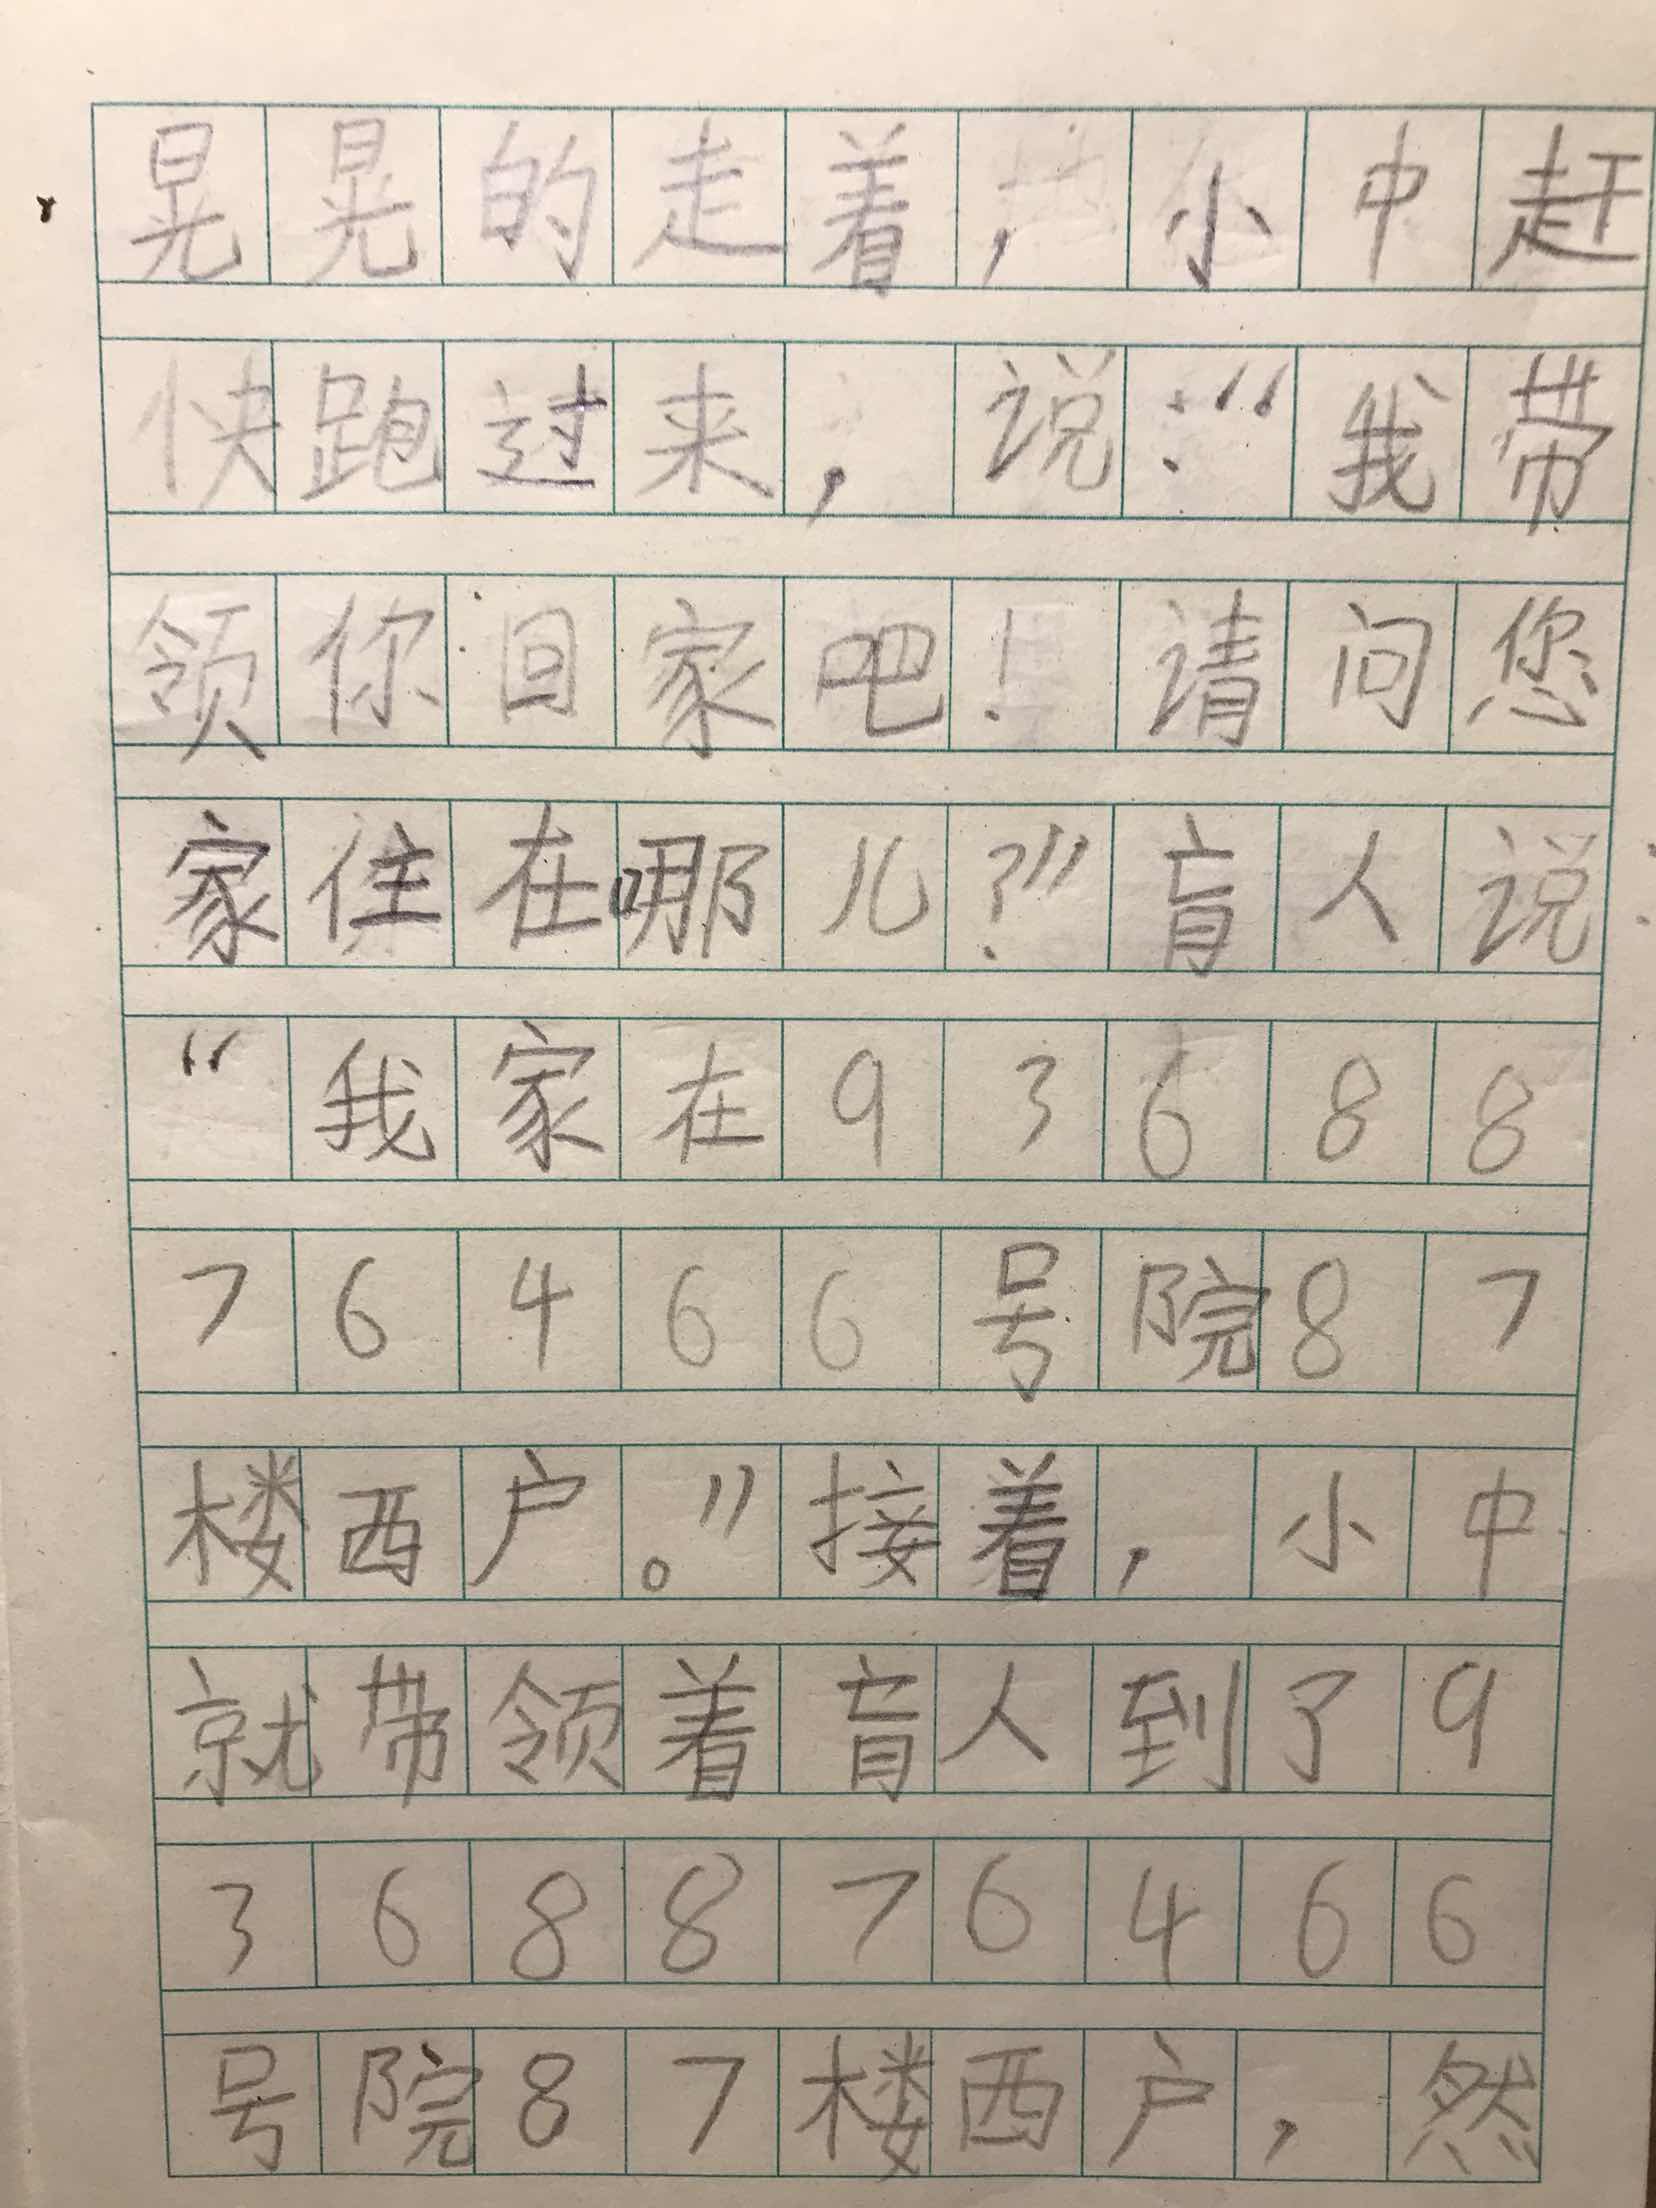 晃晃的走着，小中赶
快跑过来，说：“我带
领你回家吧！请问您
家住在哪儿？”盲人说：
“我家在93688
76466号院87
楼西户。”接着，小中
就带领着盲人到了9
368876466
号院87楼西户，然